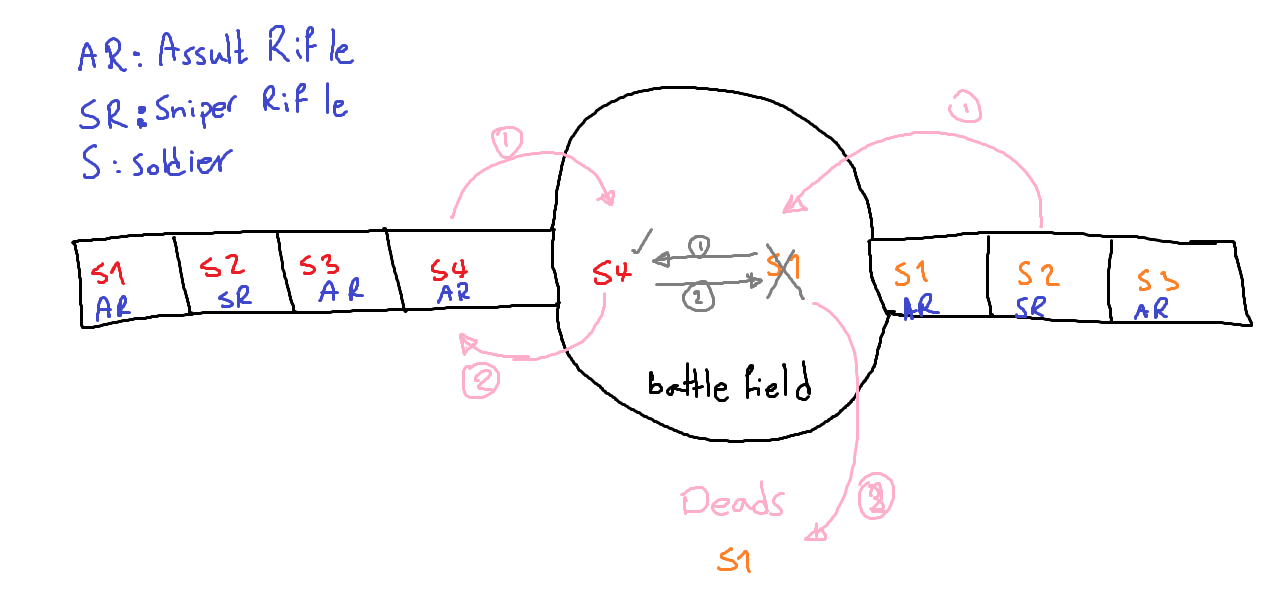 AR: Assult Rifle
SR: Sniper Rifle
S: soldier
1
1
S1 S2 S3 S4
AR SR AR AR
S4 1 S1
2
S1 S2 S3
AR SR AR
2
battle field
Deads
S1